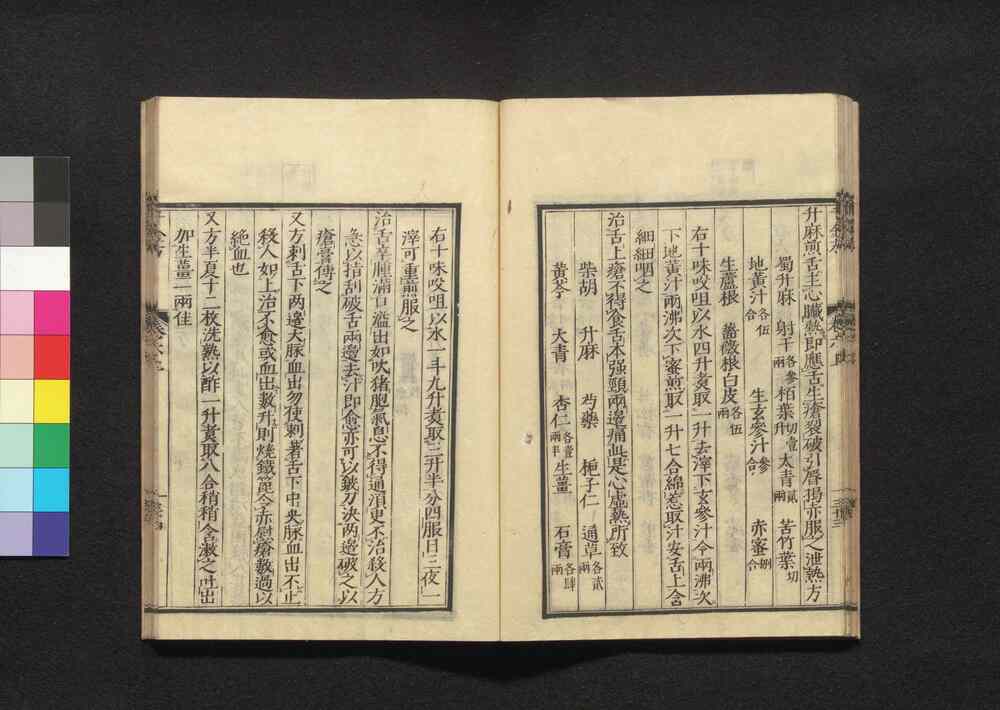 升麻煎舌主心臟熱即應舌生瘡裂破引脣揭赤服之泄熱方
蜀升麻 射干各叁兩 栢葉切壹升 大青貳兩 苦竹葉切
地黃汁各伍合 生玄參汁叁合 赤蜜捌合
生蘆根 薔薇根白皮各伍兩
右十味㕮咀以水四升煑取一升去滓下玄參汁令兩沸次
下地黃汁兩沸次下蜜煎取一升七合綿惹取汁安舌上含
細細咽之
治舌上瘡不得食舌本强頸兩邊痛此是心虛熱所致
柴胡 升麻 芍藥 梔子仁 通草各貳兩
黃芩 大青 杏仁各壹兩半 生薑 石膏各肆兩
右十味㕮咀以水一斗九升煑取三升半分四服日三夜一
滓可重煎服之
治舌卒腫滿口溢出如吹猪胞氣息不得通須臾不治殺人方
急以指刮破舌兩邊去汁即愈亦可以鈹刀決兩邊破之以
瘡膏傅之
又方刺舌下兩邊大脉血出勿使刺著舌下中央脉血出不止
殺人如上治不愈或血出數升則燒鐵篦令赤熨瘡數過以
絶血也
又方半夏十二枚洗熟以酢一升煑取八合稍稍含漱之吐出
加生薑一兩佳